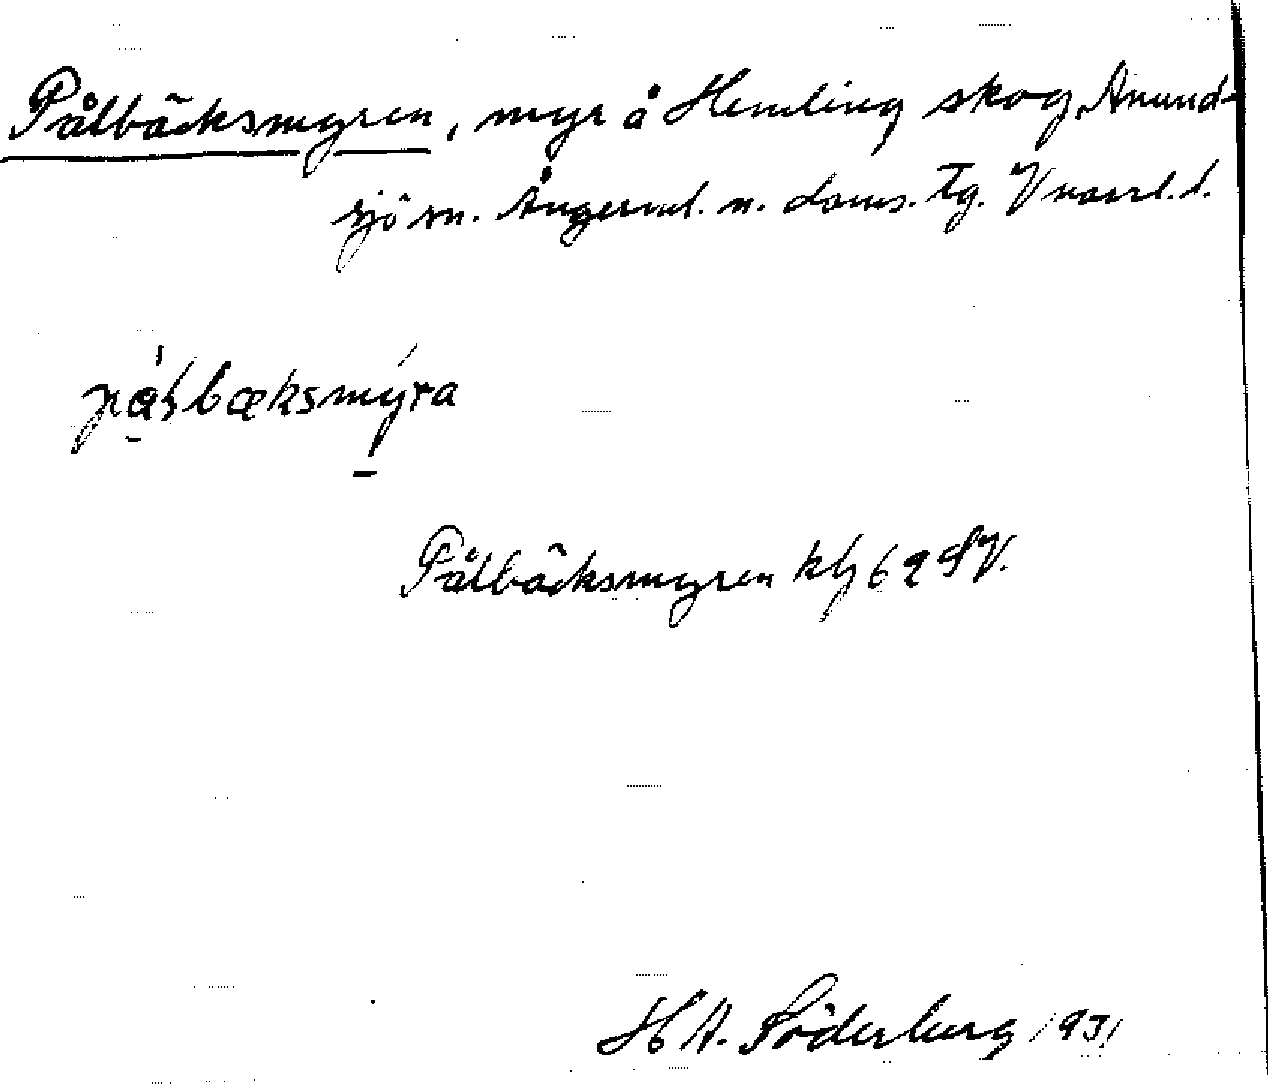 Pålbäcksmyren, myr å Hemling skog, Anund-
sjö sn. Ångerml. n. doms. Tg. Vnorrl. l.
påłbæksmýra
Pålbäcksmyren kbl 62 SV.
H A. Söderberg 1931